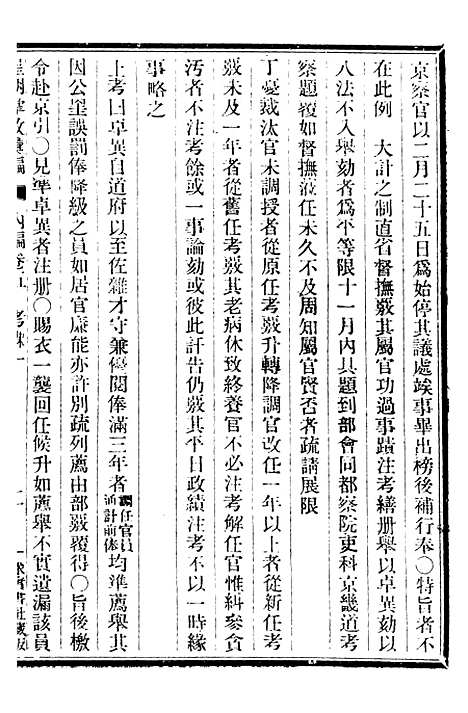 京察官以二月二十五日爲始停其議處竢事畢出榜後補行奉〇特旨者不
在此例　大計之制直省督撫覈其屬官功過事蹟注考繕册舉以卓異劾以
八法不入舉劾者爲平等限十一月內具題到部會同都察院吏科京畿道考
察題覆如督撫涖任未久不及周知屬官賢否者疏請展限
丁憂裁汰官未調授者從原任考覈升轉降調官改任一年以上者從新任考
覈未及一年者從舊任考覈其老病休致終養官不必注考解任官惟糾參貪
汚者不注考餘或一事論劾或彼此訐告仍覈其平日政績注考不以一時緣
事略之
上考曰卓異自道府以至佐雜才守兼優閱俸滿三年者調任官員通計前俸均準薦舉其
因公罣誤罰俸降級之員如居官廉能亦許別疏列薦由部覈覆得〇旨後檄
令赴京引〇見準卓異者注册〇賜衣一襲回任候升如薦舉不實遺漏該員
皇朝掌故彙編　內編卷　考課一
求實書社藏版